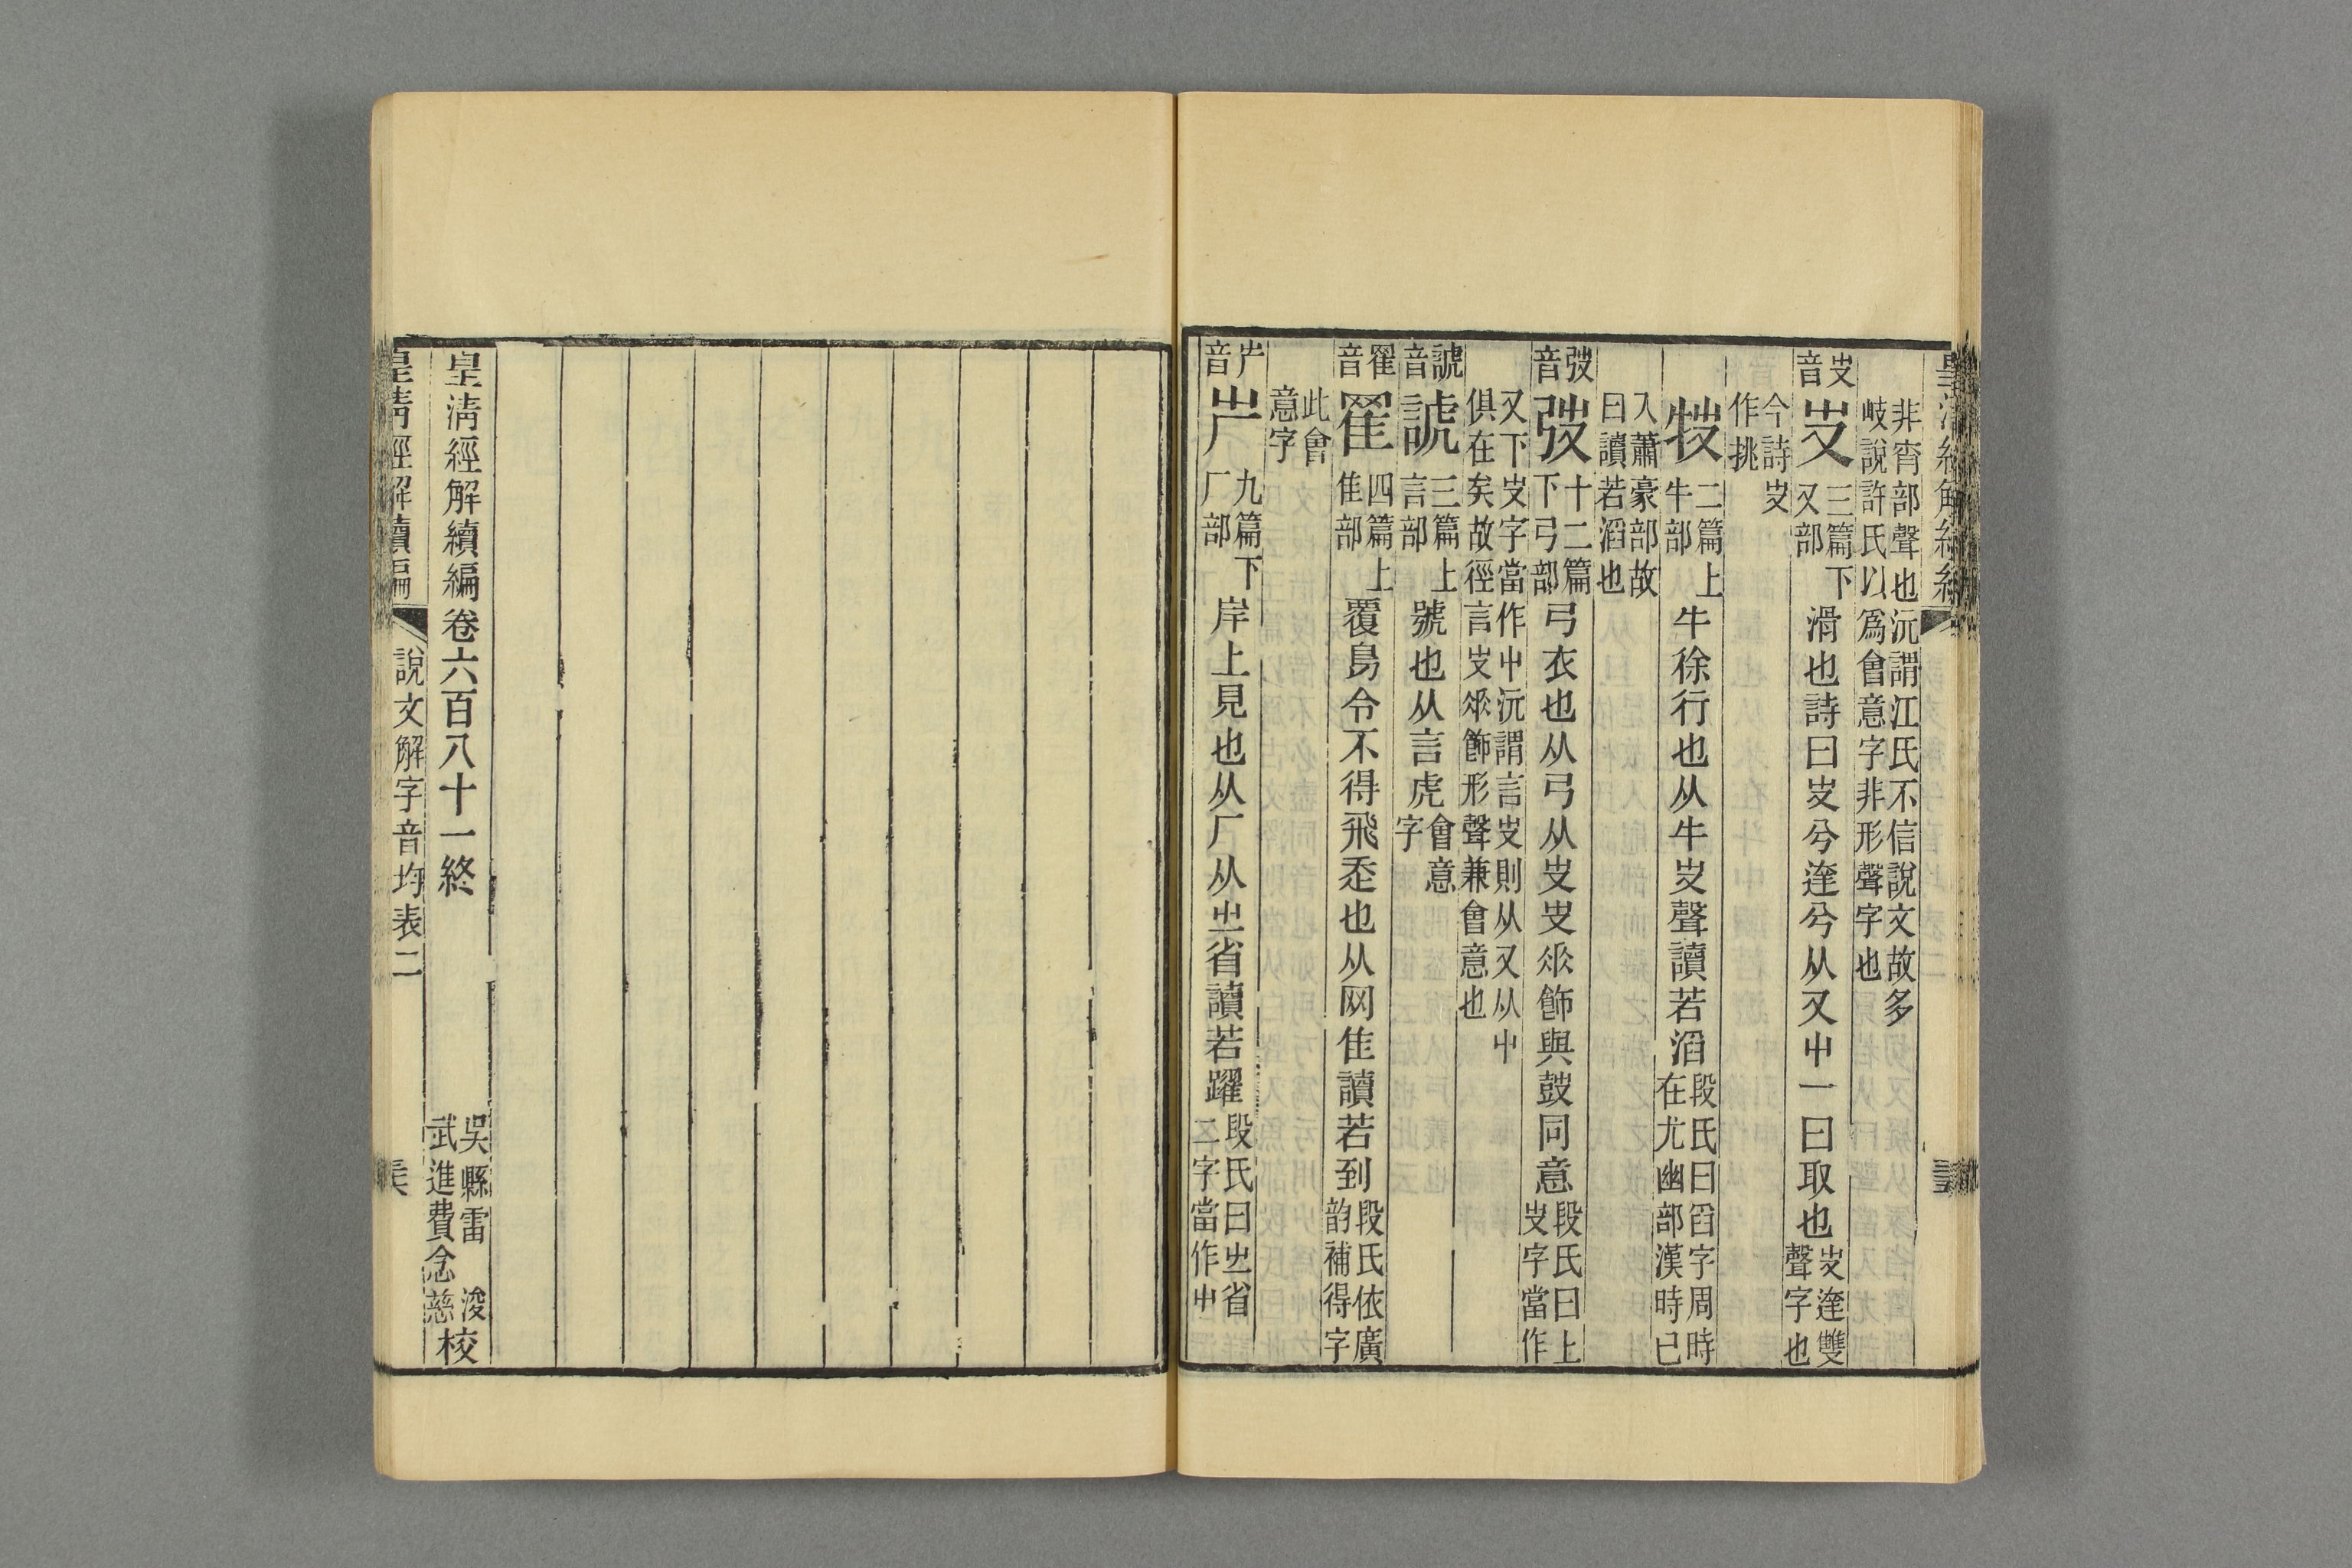 非宵部聲也沅謂江氏不信說文故多
岐說許氏以爲會意字非形聲字也
𠬢音 𠬢 三篇下又部 滑也詩曰𠬢兮達兮从又屮一曰取也 𠬢達雙聲字也
今詩𠬢作挑
𤘸 二篇上牛部 牛徐行也从牛𠬢聲讀若滔 段氏曰舀字周時在尤幽部漢時已
入蕭豪部故曰讀若滔也
弢音 弢 十二篇下弓部 弓衣也从弓从𠬢𠬢𠂹飾與鼓同意 段氏曰上𠬢字當作
又下𠬢字當作屮沅謂言𠬢則从又从屮
俱在矣故徑言𠬢𠂹飾形聲兼會意也
諕音 諕 三篇上言部 號也从言虎 會意字
䍜音 䍜 四篇上隹部 覆鳥令不得飛𨑒也从网隹讀若到 段氏依廣韵補得字
此會意字
屵音 屵 九篇下厂部 岸上見也从厂从㞢省讀若躍 段氏曰㞢省二字當作屮
皇清經解續編卷六百八十一終
吳縣雷浚
武進費念慈校
皇清經解續編 說文解字音均表二